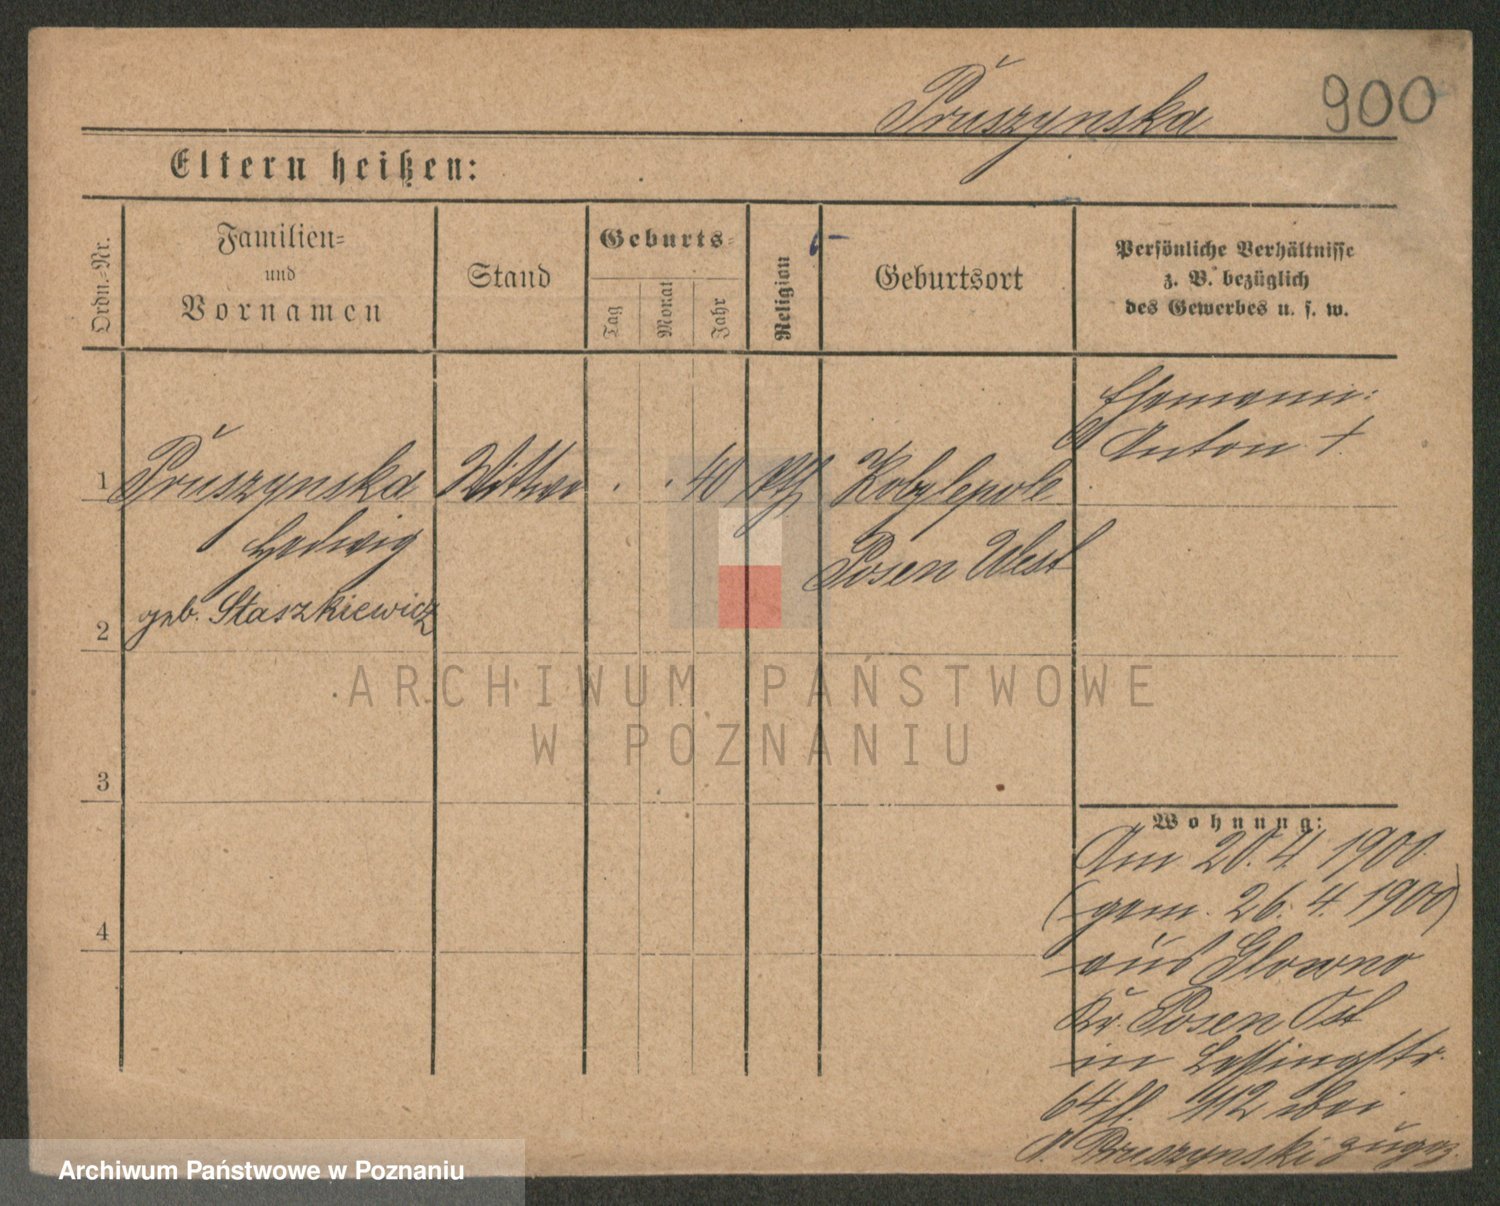 Pruszynska 900
Eltern heißen:
Ordn.-Nr.
Familien=
und
Vornamen
Stand
Geburts=
Tag
Monat
Jahr
Religion
Geburtsort
Persönliche Verhältnisse
z. B. bezüglich
des Gewerbes u. s. w.
Ehemann:
Anton †.
1 Pruszynska Wittwe . . 40 kth Kobylepole
Hedwig Posen West
2 geb. Staszkiewicz
3
4
Wohnung:
Am 20. 4. 1900.
(gem. 26. 4. 1900)
aus Glowno
Kr. Posen Ost
in Lessingstr.
bei
Pruszynski zugez.
ARCHIWUM PAŃSTWOWE
W POZNANIU
Archiwum Państwowe w Poznaniu